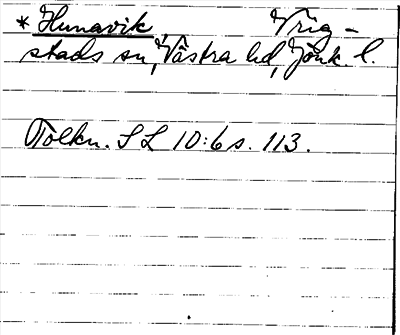 * Hunavik, Vrig-
stads sn, Västra hd, Jönk l.
Tolkn. SL 10:6 s. 113.